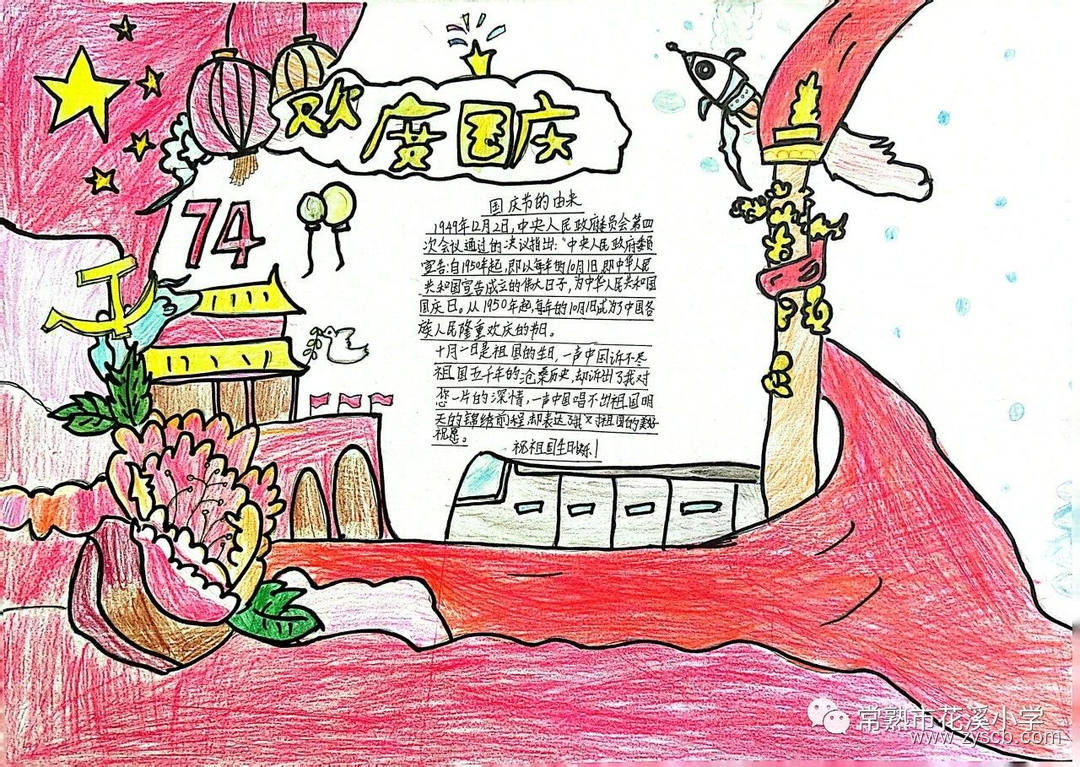 欢度国庆
74
国庆节的由来
1949年12月2日,中央人民政府委员会第四
次会议通过的决议指出:“中央人民政府委员
宣告:自1950年起,即以每年的10月1日,即中华人民
共和国宣告成立的伟大日子,为中华人民共和国
国庆日。从1950年起,每年的10月1日成为了中国各
族人民隆重欢庆的节日。
十月一日是祖国的生日,一声中国诉不尽
祖国五千年的沧桑历史,却诉出了我对
您一片的深情,一声中国唱不出祖国明
天的锦绣前程,却表达了对祖国的美好
祝愿。
祝祖国生日快乐!
常熟市花溪小学
www.zyscb.com